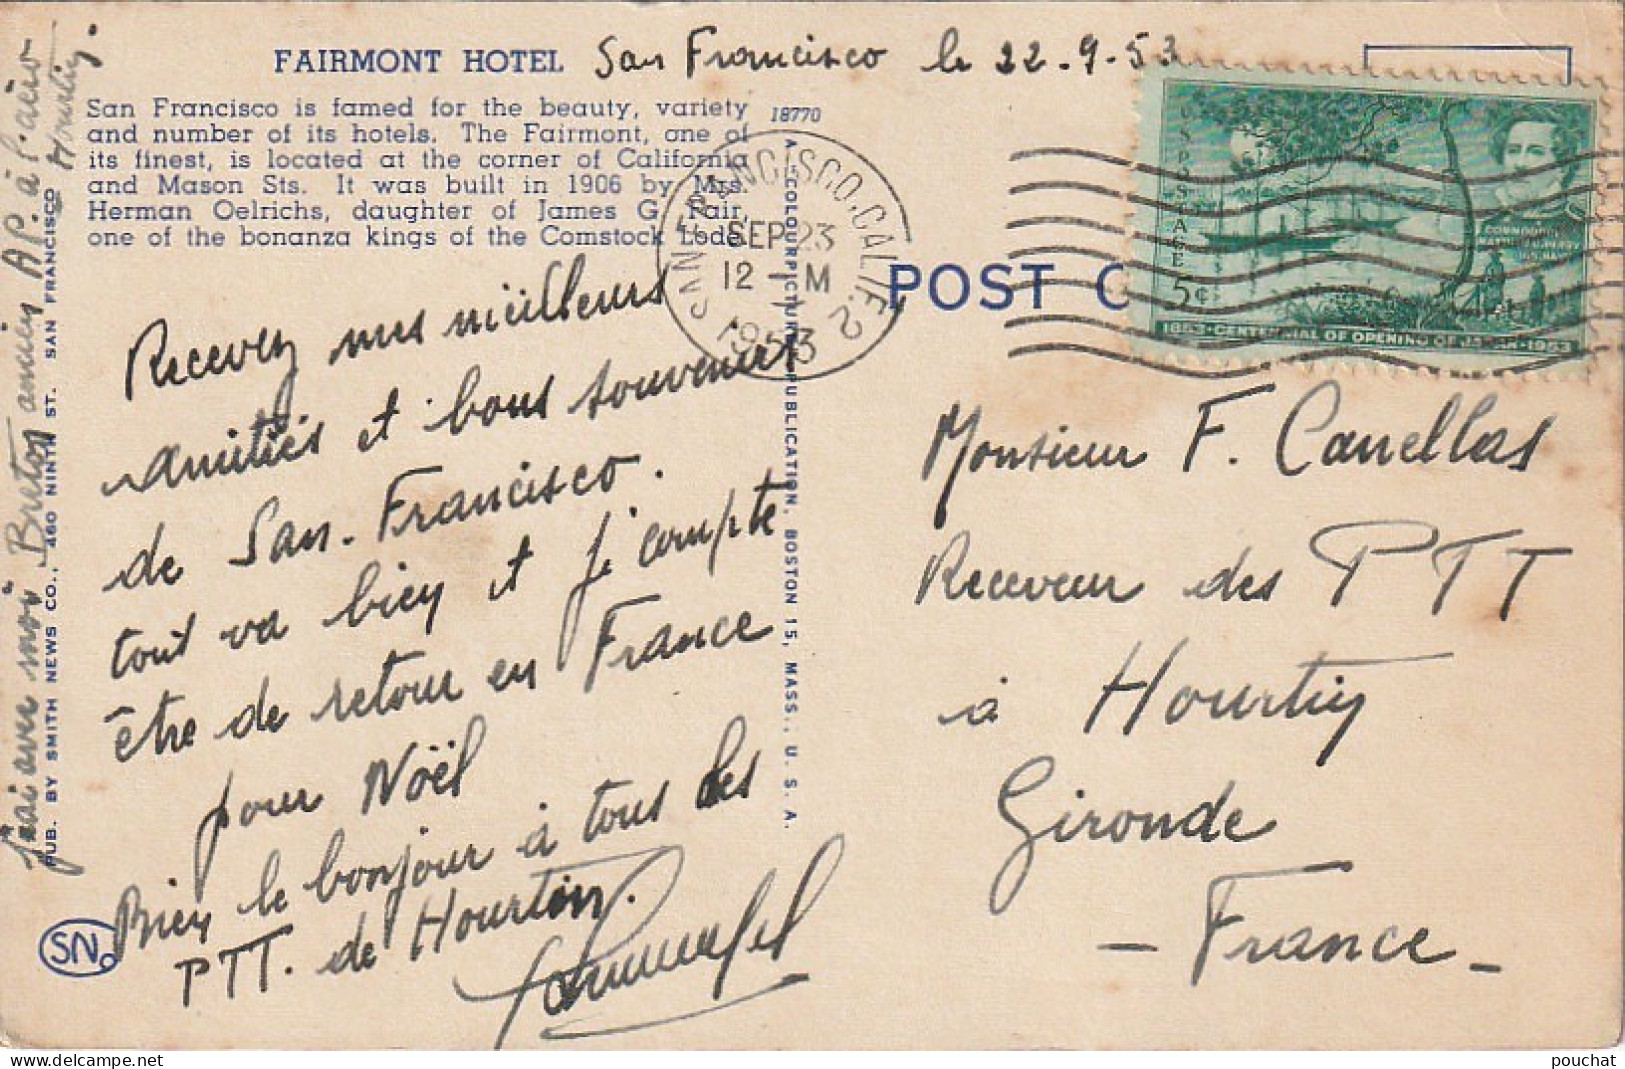 FAIRMONT HOTEL San Francisco le 22-9-53
San Francisco is famed for the beauty, variety
and number of its hotels. The Fairmont, one of
its finest, is located at the corner of California
and Mason Sts. It was built in 1906 by Mrs.
Herman Oelrichs, daughter of James G. Fair,
one of the bonanza kings of the Comstock Lode.
18770
SAN FRANCISCO, CALIF. 2
SEP 23
12 M
1953
U.S. POSTAGE
5¢
COMMODORE
MATTHEW C. PERRY
U.S. NAVY
1853·CENTENNIAL OF OPENING OF JAPAN·1953
POST C
Recevez mes meilleurs
amitiés et bons souvenirs
de San-Francisco.
tout va bien et j'compte
être de retour en France
pour Noël
Bien le bonjour à tous les
PTT. de Hourtin.
j'ai avec moi Breton ancien AP. à l'aéro
Hourtin.
PUB. BY SMITH NEWS CO., 460 NINTH ST. SAN FRANCISCO
SN.
PUBLICATION, BOSTON 15, MASS., U. S. A.
Monsieur F. Canellas
Receveur des PTT
à Hourtin
Gironde
- France -
delcampe.net
pouchat